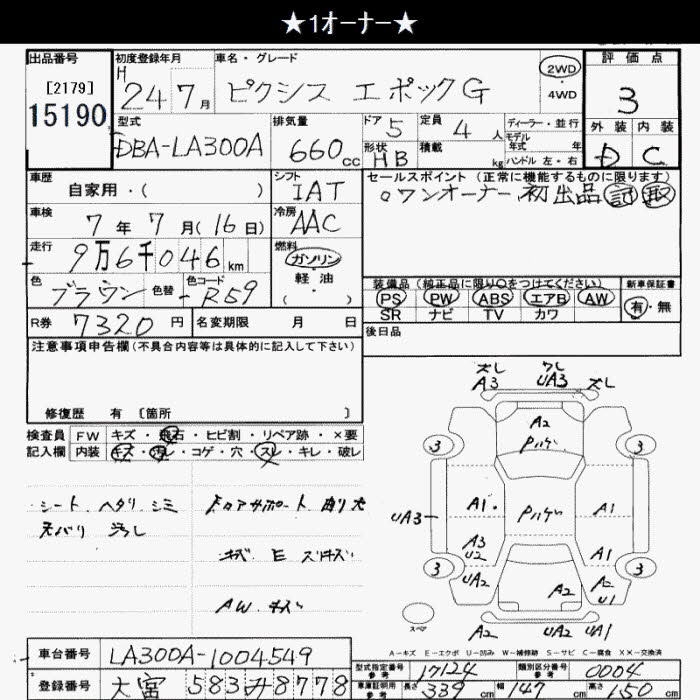 ★1オーナー★
出品番号
[2179]
15190
初度登録年月
H 24 7月
車名・グレード
ピクシス エポックG
2WD
・
4WD
評価点
3
外装 内装
D C
型式
DBA-LA300A
排気量
660cc
ドア 5
定員 4人
ディーラー・並行
モデル
年式 年
形状 HB
積載 kg
ハンドル 左・右
車歴
自家用・( )
シフト
IAT
セールスポイント(正常に機能するものに限ります)
ワンオーナー 初出品 記 取
車検
7年7月(16日)
冷房
AAC
走行
9万6千046km
燃料
ガソリン
軽・油
( )
色
ブラウン
色替
色コード
R59
装備品(純正品に限り○をつけてください)
PS PW ABS エアB AW
SR ナビ TV カワ
新車保証書
有・無
R券 7320円
名変期限 月 日
後日品
注意事項申告欄(不具合内容等は具体的に記入して下さい)
修復歴 有 [箇所 ]
検査員
記入欄
FW キズ・飛石・ヒビ割・リペア跡・×要
内装 キズ・汚レ・コゲ・穴・スレ・キレ・破レ
シート ヘタリ シミ
汚レ
ドロアサポート 曲り大
キズ E
AW キズ
ズレ ワレ ズレ
A3 UA3
A2
Pハゲ
3 3
UA3
A1 Pハゲ A1
A3
U2
A1
3 3
UA2 A2 A2
U1
スペア
A2 UA2 UA1
A-キズ E-エクボ U-凹み W-補修跡 S-サビ C-腐食 XX-交換済
車台番号
LA300A-1004549
登録番号
大宮 583 み 8778
型式指定番号
参考
17124
類別区分番号
参考
0004
車庫証明用
参考
長さ 339cm
幅 147cm
高さ 150cm